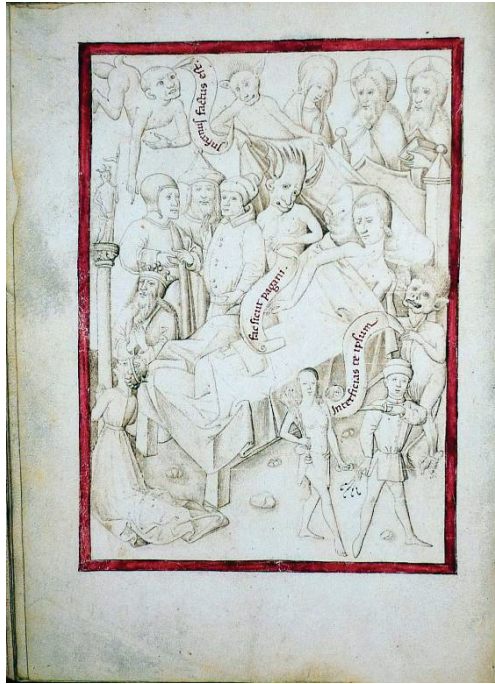 Infernus factus est.
fac sicut pagani.
Interficias te ipsum